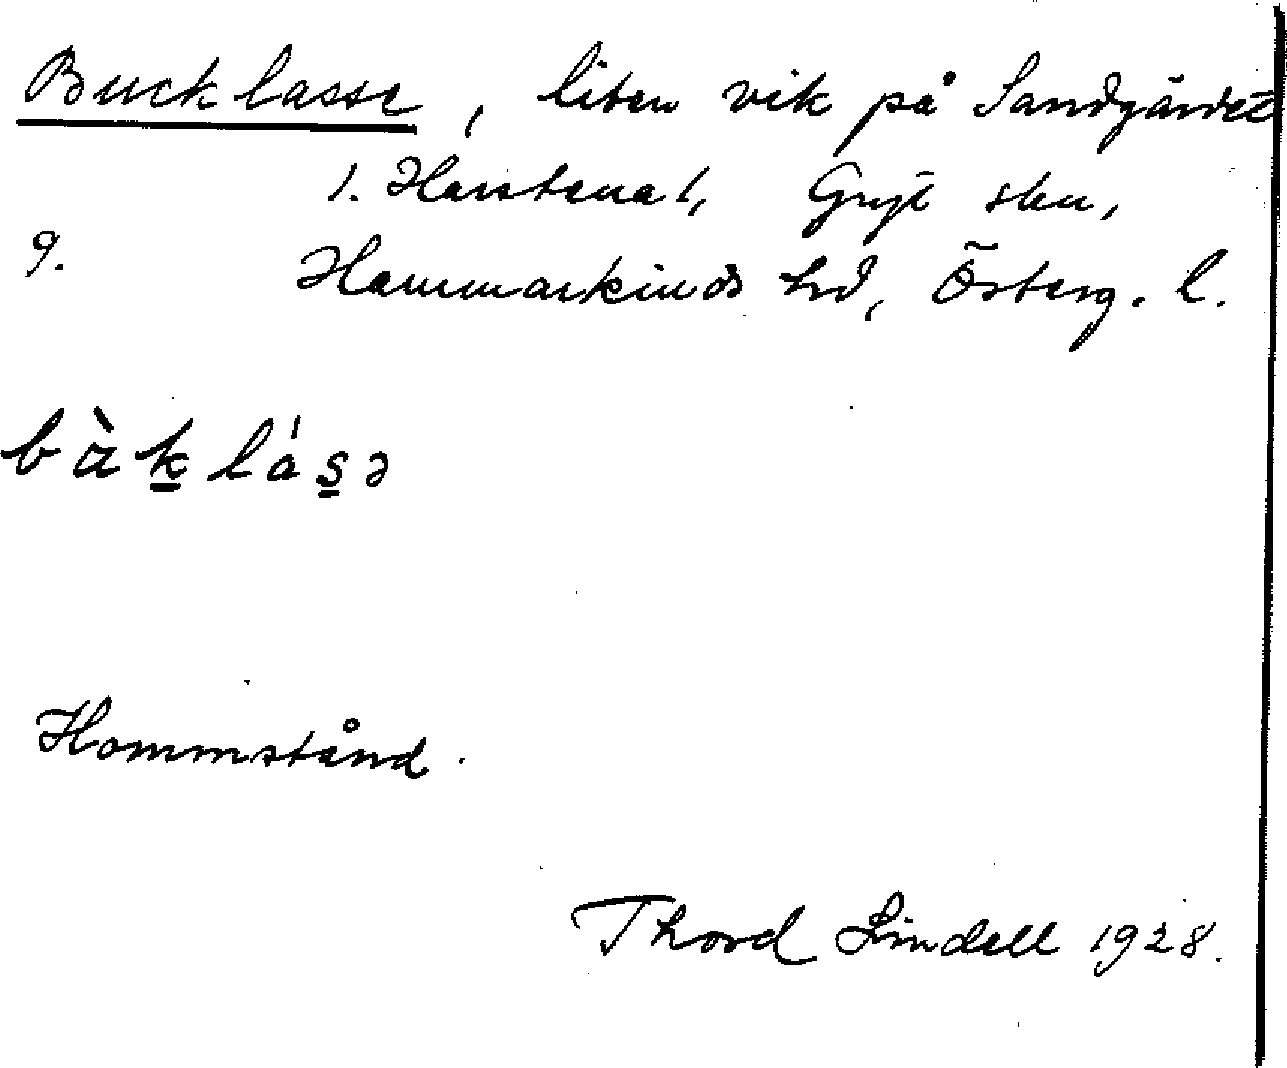 Bucklasse, liten vik på Sandgärdet
1. Harstena l, Gryt skn,
9. Hammarkinds hd, Österg. l.
bàk lás̱ə
Hommstånd.
Thord Lindell 1928.